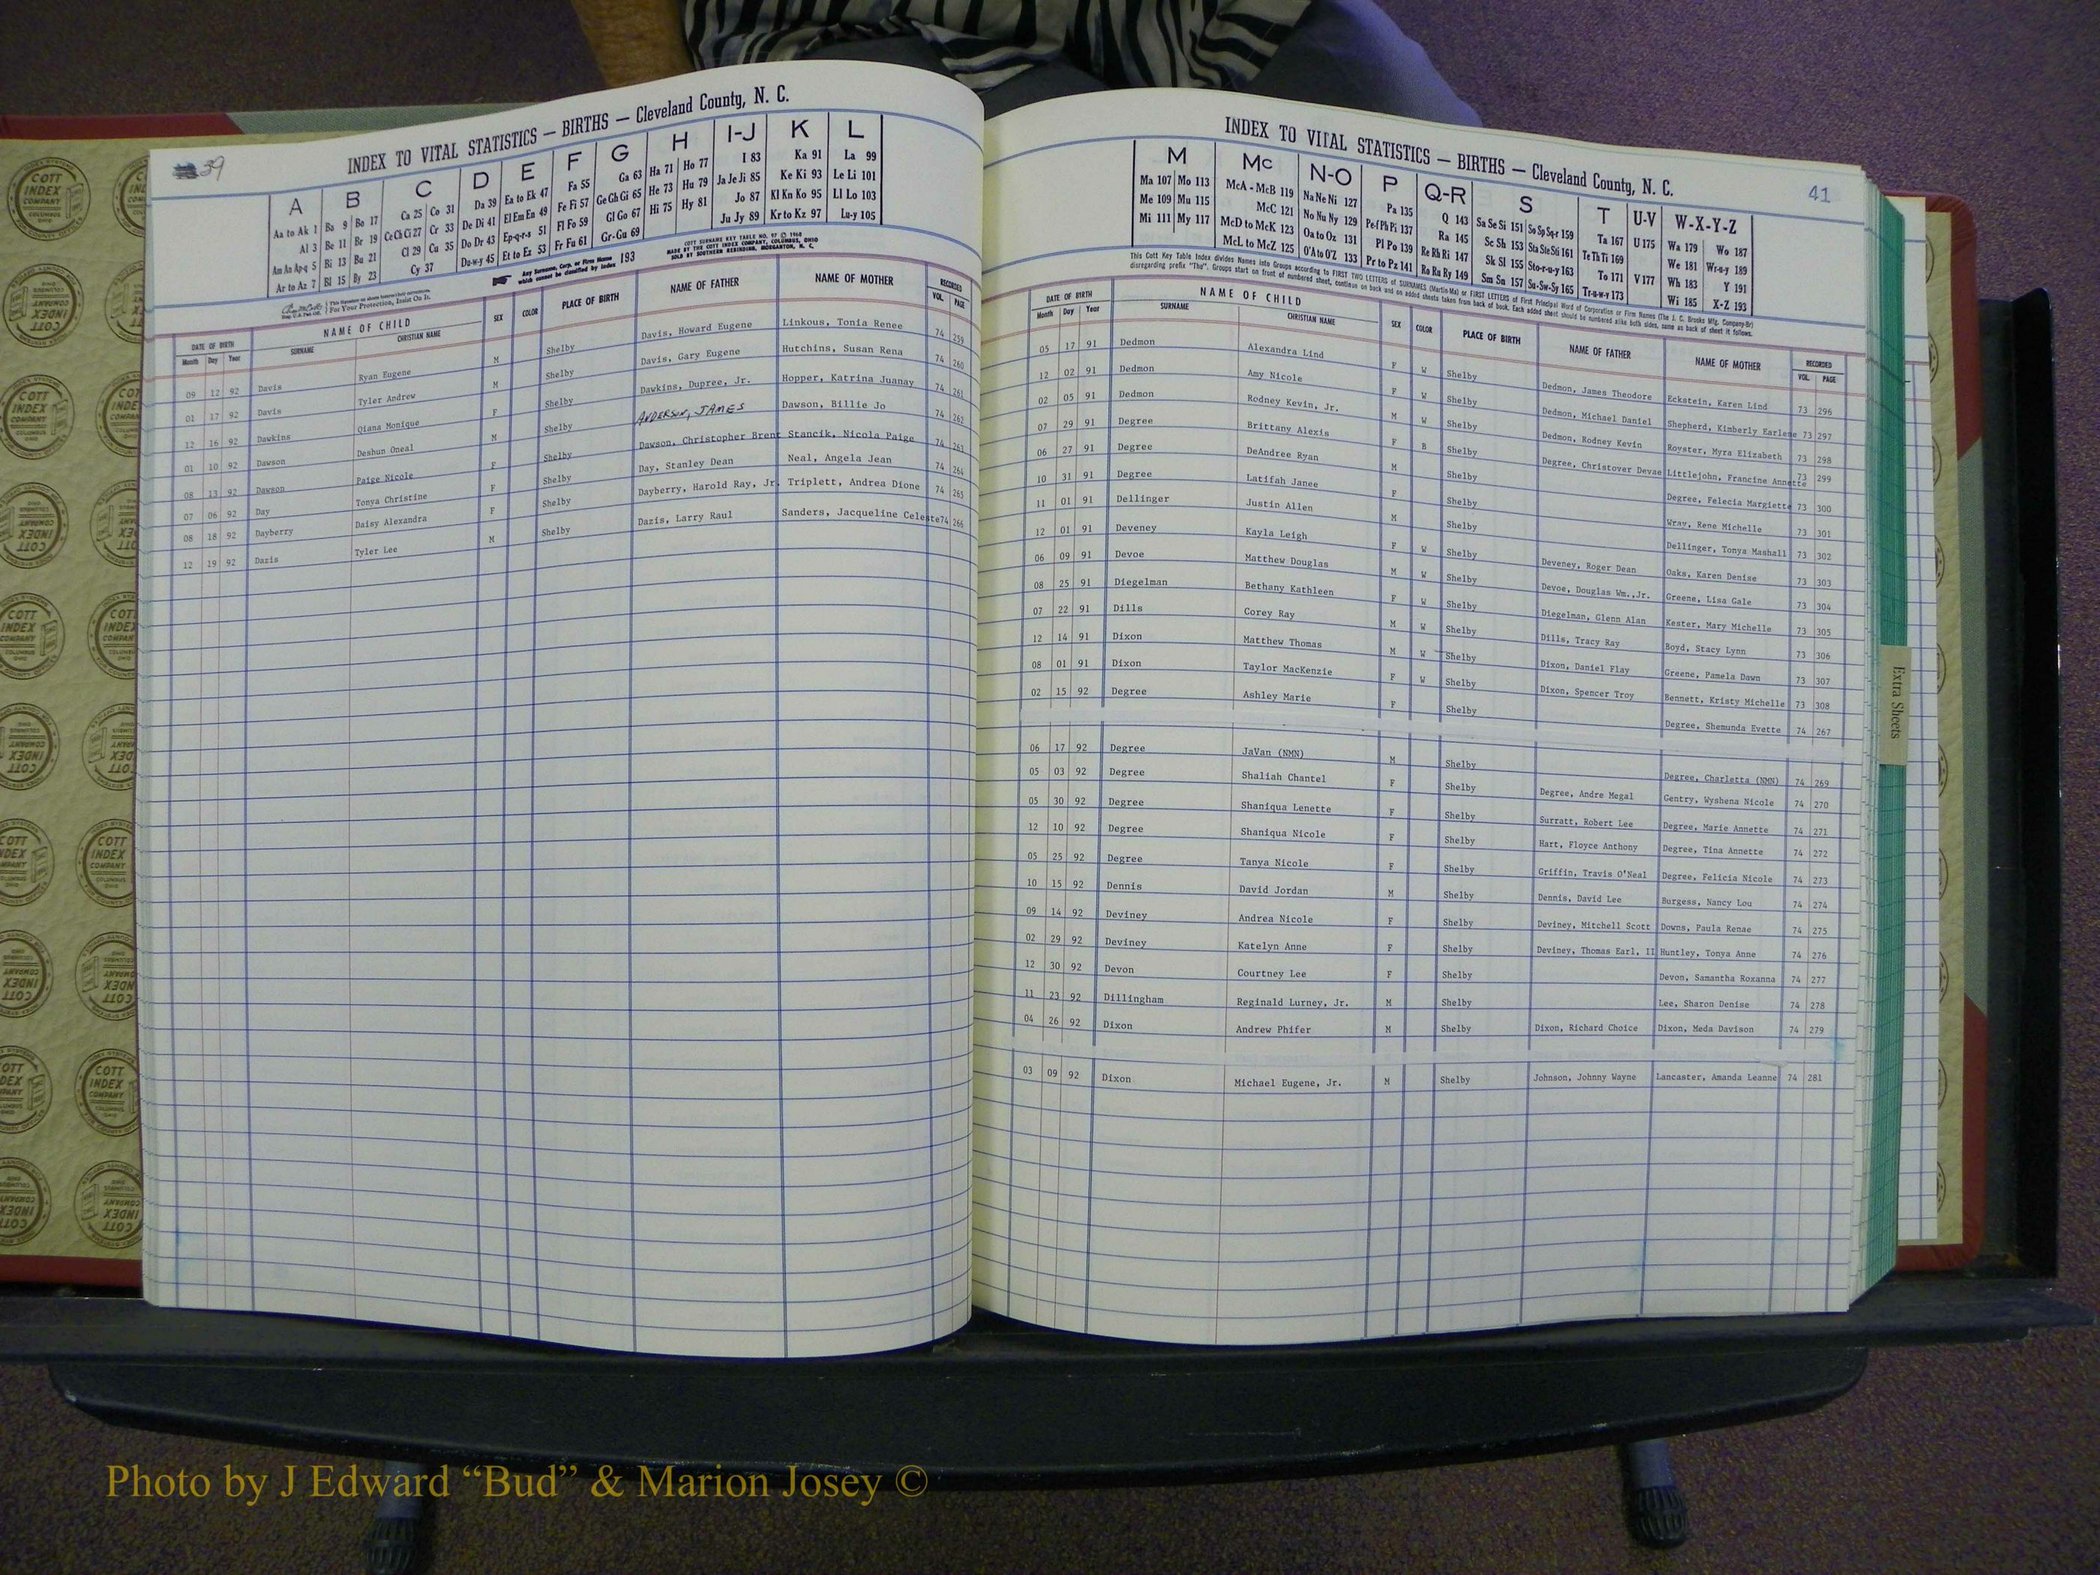 39
INDEX TO VITAL STATISTICS — BIRTHS — Cleveland County, N. C.
A B C D E F G H I-J K L
Aa to Ak 1 Ba 9 Bo 17 Ca 25 Co 31 Da 39 Ea to Ek 47 Fa 55 Ga 63 Ha 71 Ho 77 I 83 Ka 91 La 99
Al 3 Be 11 Br 19 Ce Ch Ci 27 Cr 33 De Di 41 El Em En 49 Fe Fi 57 Ge Gh Gi 65 He 73 Hu 79 Ja Je Ji 85 Ke Ki 93 Le Li 101
Am An Ap-q 5 Bi 13 Bu 21 Cl 29 Cu 35 Do Dr 43 Ep-q-r-s 51 Fl Fo 59 Gl Go 67 Hi 75 Hy 81 Jo 87 Kl Kn Ko 95 Ll Lo 103
Ar to Az 7 Bl 15 By 23 Cy 37 Du-w-y 45 Et to Ez 53 Fr Fu 61 Gr-Gu 69 Ju Jy 89 Kr to Kz 97 Lu-y 105
COTT SURNAME KEY TABLE NO. 97 © 1968
MADE BY THE COTT INDEX COMPANY, COLUMBUS, OHIO
SOLD BY SOUTHERN REBINDING, MORGANTON, N. C.
Any Surname, Corp. or Firm Name which cannot be classified by Index 193
For Your Protection, Insist On It.
DATE OF BIRTH NAME OF CHILD SEX COLOR PLACE OF BIRTH NAME OF FATHER NAME OF MOTHER RECORDED
Month Day Year SURNAME CHRISTIAN NAME VOL. PAGE
09 12 92 Davis Ryan Eugene M Shelby Davis, Howard Eugene Linkous, Tonia Renee 74 259
01 17 92 Davis Tyler Andrew M Shelby Davis, Gary Eugene Hutchins, Susan Rena 74 260
12 16 92 Dawkins Qiana Monique F Shelby Dawkins, Dupree, Jr. Hopper, Katrina Juanay 74 261
01 10 92 Dawson Deshun Oneal M Shelby ANDERSON, JAMES Dawson, Billie Jo 74 262
08 13 92 Dawson Paige Nicole F Shelby Dawson, Christopher Brent Stancik, Nicola Paige 74 263
07 06 92 Day Tonya Christine F Shelby Day, Stanley Dean Neal, Angela Jean 74 264
08 18 92 Dayberry Daisy Alexandra F Shelby Dayberry, Harold Ray, Jr. Triplett, Andrea Dione 74 265
12 19 92 Dazis Tyler Lee M Shelby Dazis, Larry Raul Sanders, Jacqueline Celeste 74 266
INDEX TO VITAL STATISTICS — BIRTHS — Cleveland County, N. C.
41
M Mc N-O P Q-R S T U-V W-X-Y-Z
Ma 107 Mo 113 McA - McB 119 Na Ne Ni 127 Pa 135 Q 143 Sa Se Si 151 So Sp Sq-r 159 Ta 167 U 175 Wa 179 Wo 187
Me 109 Mu 115 McC 121 No Nu Ny 129 Pe-f Ph Pi 137 Ra 145 Sc Sh 153 Sta Ste Sti 161 Te Th Ti 169 We 181 Wr-u-y 189
Mi 111 My 117 McD to McK 123 Oa to Oz 131 Pl Po 139 Re Rh Ri 147 Sk Sl 155 Sto-r-u-y 163 To 171 V 177 Wh 183 Y 191
McL to McZ 125 O'A to O'Z 133 Pr to Pz 141 Ro Ru Ry 149 Sm Sn 157 Su-Sw-Sy 165 Tr-u-w-y 173 Wi 185 X-Z 193
This Cott Key Table Index divides Names into Groups according to FIRST TWO LETTERS of SURNAMES (Martin-Ma) or FIRST LETTERS of First Principal Word of Corporation or Firm Names (The J. C. Brooks Mfg. Company-Br)
disregarding prefix "The". Groups start on front of numbered sheet, continue on back and on added sheets taken from back of book. Each added sheet should be numbered alike both sides, same as back of sheet it follows.
DATE OF BIRTH NAME OF CHILD SEX COLOR PLACE OF BIRTH NAME OF FATHER NAME OF MOTHER RECORDED
Month Day Year SURNAME CHRISTIAN NAME VOL. PAGE
05 17 91 Dedmon Alexandra Lind F W Shelby Dedmon, James Theodore Eckstein, Karen Lind 73 296
12 02 91 Dedmon Amy Nicole F W Shelby Dedmon, Michael Daniel Shepherd, Kimberly Earlene 73 297
02 05 91 Dedmon Rodney Kevin, Jr. M W Shelby Dedmon, Rodney Kevin Royster, Myra Elizabeth 73 298
07 29 91 Degree Brittany Alexis F B Shelby Degree, Christover Devae Littlejohn, Francine Annette 73 299
06 27 91 Degree DeAndree Ryan M Shelby Degree, Felecia Margiette 73 300
10 31 91 Degree Latifah Janee F Shelby Wray, Rene Michelle 73 301
11 01 91 Dellinger Justin Allen M Shelby Dellinger, Tonya Mashall 73 302
12 01 91 Deveney Kayla Leigh F W Shelby Deveney, Roger Dean Oaks, Karen Denise 73 303
06 09 91 Devoe Matthew Douglas M W Shelby Devoe, Douglas Wm., Jr. Greene, Lisa Gale 73 304
08 25 91 Diegelman Bethany Kathleen F W Shelby Diegelman, Glenn Alan Kester, Mary Michelle 73 305
07 22 91 Dills Corey Ray M W Shelby Dills, Tracy Ray Boyd, Stacy Lynn 73 306
12 14 91 Dixon Matthew Thomas M W Shelby Dixon, Daniel Flay Greene, Pamela Dawn 73 307
08 01 91 Dixon Taylor MacKenzie F W Shelby Dixon, Spencer Troy Bennett, Kristy Michelle 73 308
02 15 92 Degree Ashley Marie F Shelby Degree, Shemunda Evette 74 267
06 17 92 Degree JaVan (NMN) M Shelby Degree, Charletta (NMN) 74 269
05 03 92 Degree Shaliah Chantel F Shelby Degree, Andre Megal Gentry, Wyshena Nicole 74 270
05 30 92 Degree Shaniqua Lenette F Shelby Surratt, Robert Lee Degree, Marie Annette 74 271
12 10 92 Degree Shaniqua Nicole F Shelby Hart, Floyce Anthony Degree, Tina Annette 74 272
05 25 92 Degree Tanya Nicole F Shelby Griffin, Travis O'Neal Degree, Felicia Nicole 74 273
10 15 92 Dennis David Jordan M Shelby Dennis, David Lee Burgess, Nancy Lou 74 274
09 14 92 Deviney Andrea Nicole F Shelby Deviney, Mitchell Scott Downs, Paula Renae 74 275
02 29 92 Deviney Katelyn Anne F Shelby Deviney, Thomas Earl, II Huntley, Tonya Anne 74 276
12 30 92 Devon Courtney Lee F Shelby Devon, Samantha Roxanna 74 277
11 23 92 Dillingham Reginald Lurney, Jr. M Shelby Lee, Sharon Denise 74 278
04 26 92 Dixon Andrew Phifer M Shelby Dixon, Richard Choice Dixon, Meda Davison 74 279
03 09 92 Dixon Michael Eugene, Jr. M Shelby Johnson, Johnny Wayne Lancaster, Amanda Leanne 74 281
Extra Sheets
COTT INDEX COMPANY COLUMBUS OHIO
Photo by J Edward “Bud” & Marion Josey ©